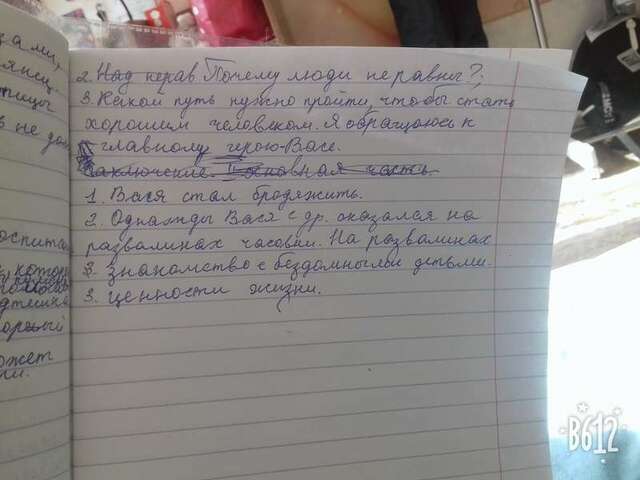 зами,
янец.
тицы
ь не дол
оспитан
котор
рный
может
ти.
2. Над нерав. Почему люди не равны?;
3. Какой путь нужно пройти, чтобы стать
хорошим человеком. Я обращаюсь к
главному герою-Васе.
Заключение. Основная часть
1. Вася стал бродяжить.
2. Однажды Вася с др. оказался на
развалинах часовни. На развалинах
3. знакомство с бездомными детьми.
3. ценности жизни.
B612